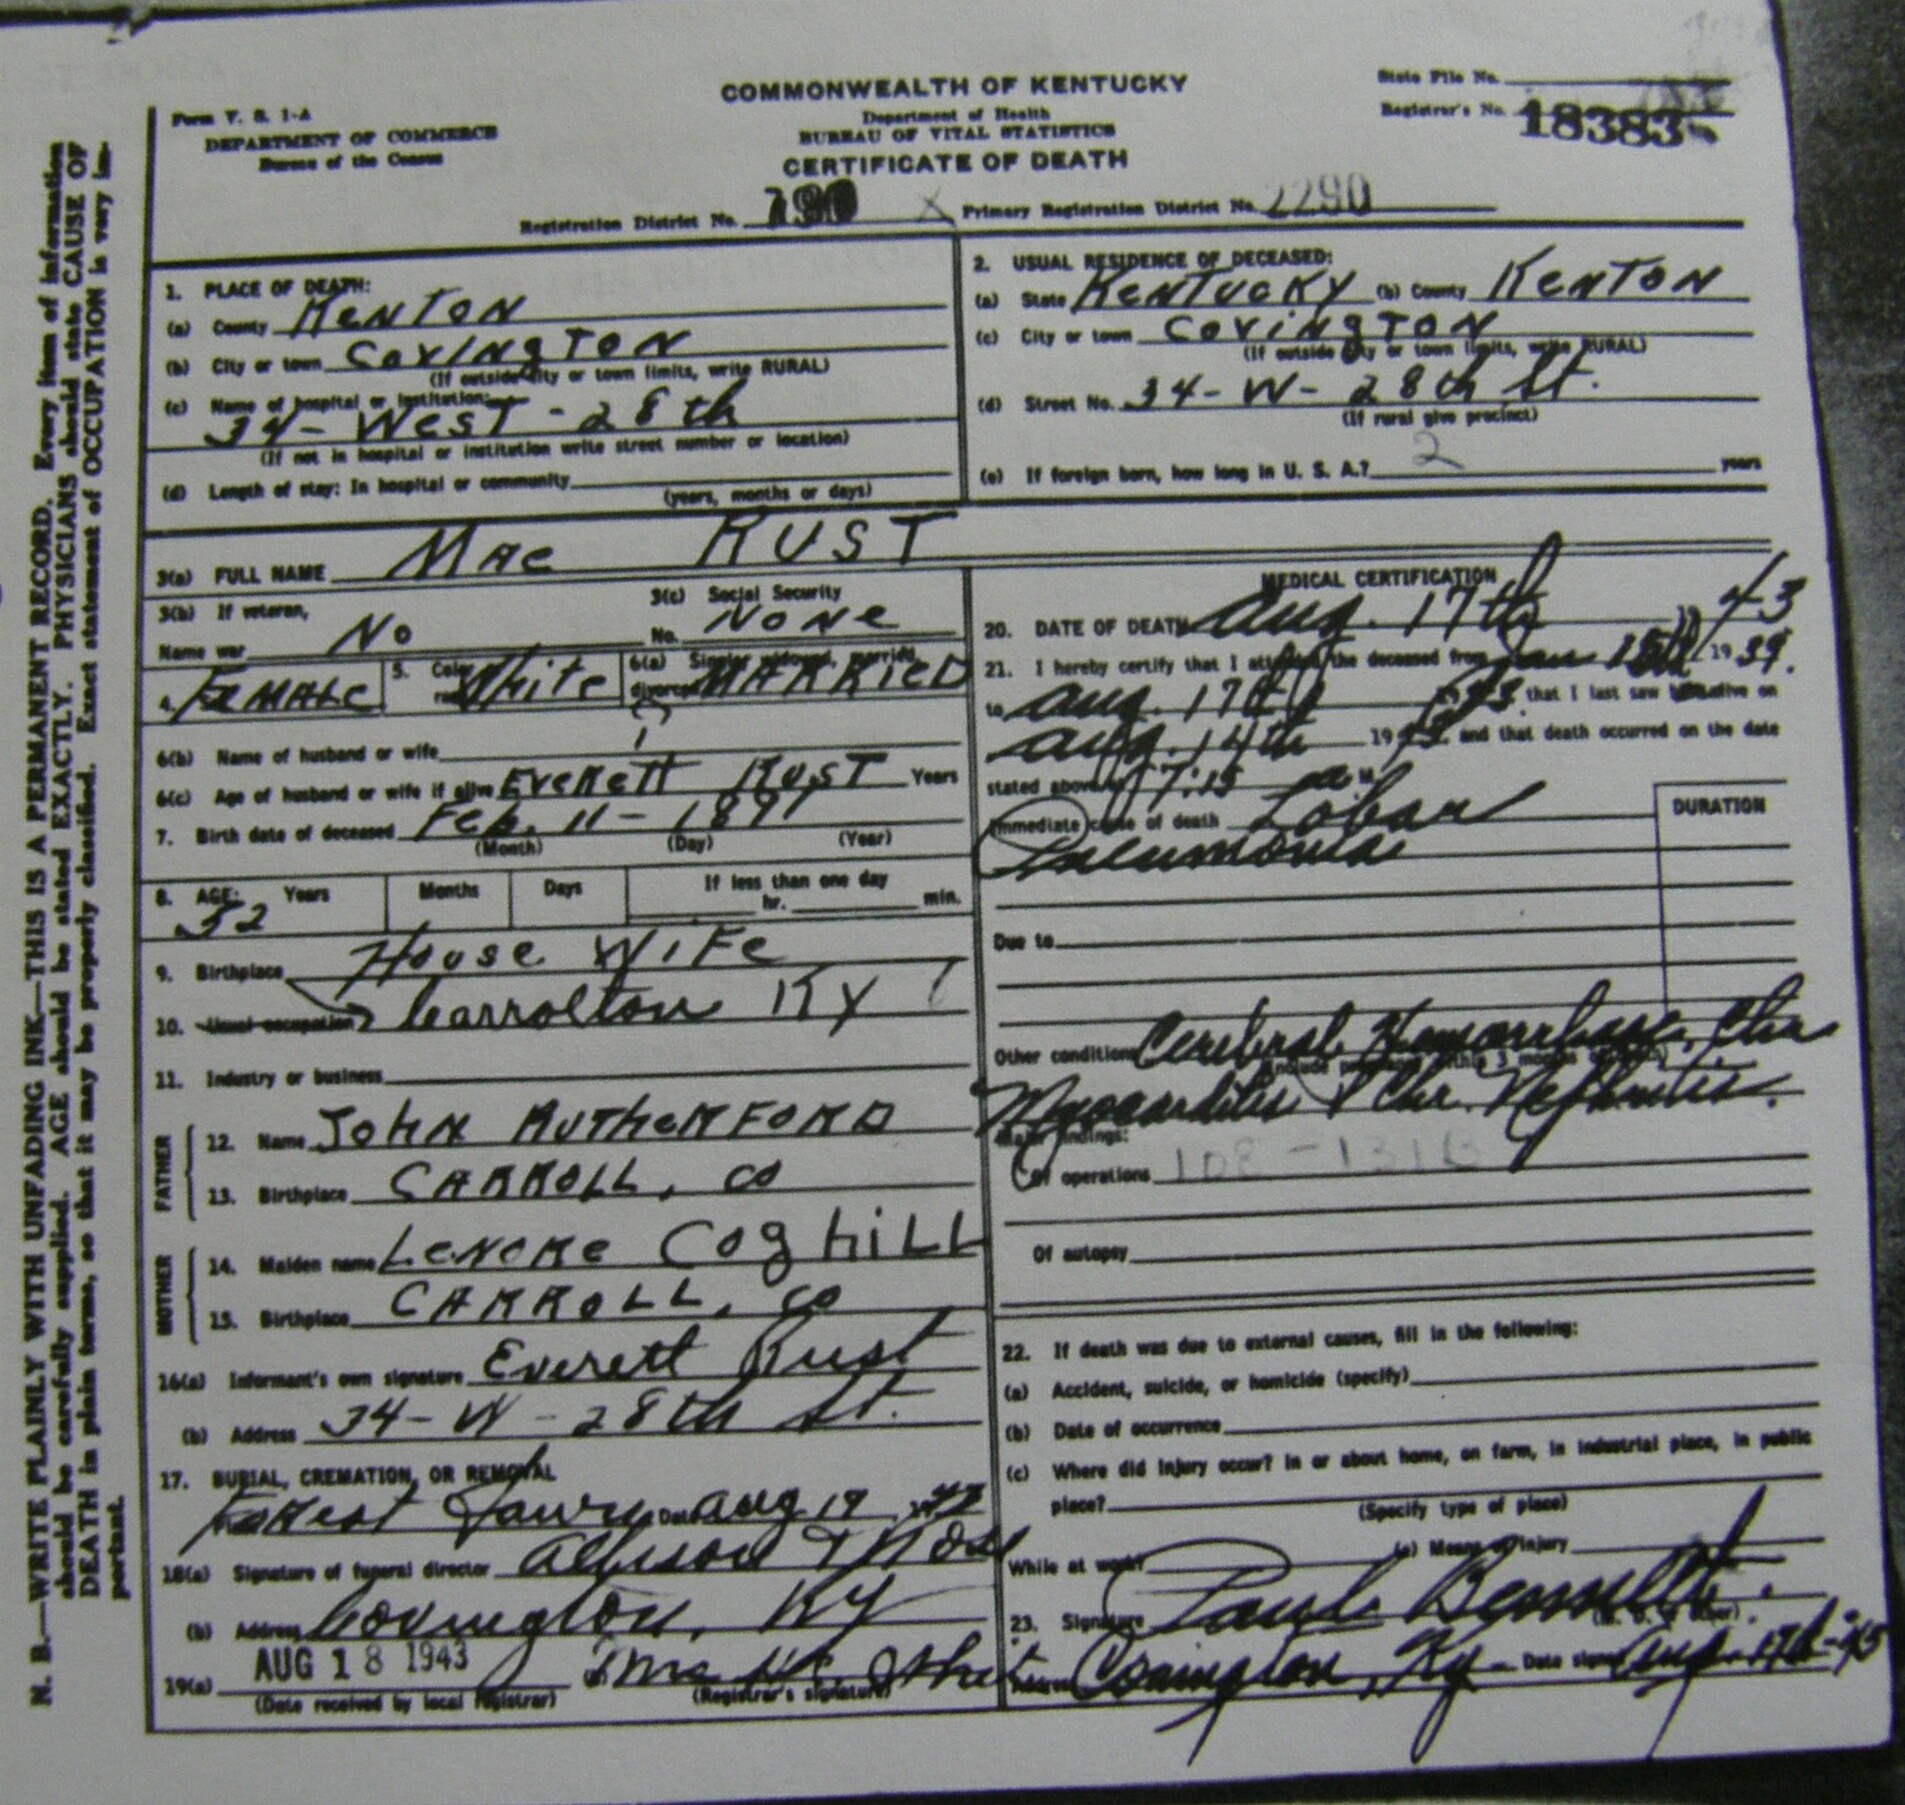 N. B.—WRITE PLAINLY WITH UNFADING INK—THIS IS A PERMANENT RECORD. Every item of information
should be carefully supplied. AGE should be stated EXACTLY. PHYSICIANS should state CAUSE OF
DEATH in plain terms, so that it may be properly classified. Exact statement of OCCUPATION is very im-
portant.
Form V. S. 1-A
DEPARTMENT OF COMMERCE
Bureau of the Census
COMMONWEALTH OF KENTUCKY
Department of Health
BUREAU OF VITAL STATISTICS
CERTIFICATE OF DEATH
State File No.
Registrar's No. 18383
Registration District No. X Primary Registration District No. 2290
1. PLACE OF DEATH:
(a) County KENTON
(b) City or town COVINGTON
(If outside city or town limits, write RURAL)
(c) Name of hospital or institution:
34 - WEST - 28th
(If not in hospital or institution write street number or location)
(d) Length of stay: In hospital or community
(years, months or days)
2. USUAL RESIDENCE OF DECEASED:
(a) State KENTUCKY (b) County KENTON
(c) City or town COVINGTON
(If outside city or town limits, write RURAL)
(d) Street No. 34 - W - 28th St.
(If rural give precinct)
(e) If foreign born, how long in U. S. A.? 2 years
3(a) FULL NAME MAE RUST
3(b) If veteran,
Name war No
3(c) Social Security
No. NONE
4. FEMALE
5. Color White
6(a) Single, widowed, married,
divorced MARRIED
6(b) Name of husband or wife
6(c) Age of husband or wife if alive EVERETT RUST Years
7. Birth date of deceased Feb. 11 - 1891
(Month) (Day) (Year)
8. AGE: Years Months Days If less than one day
52 hr. min.
9. Birthplace HOUSE WIFE
10. Usual occupation Carrolton KY
11. Industry or business
FATHER
12. Name JOHN RUTHERFORD
13. Birthplace CARROLL, CO
MOTHER
14. Maiden name LENORE COGHILL
15. Birthplace CARROLL, CO
16(a) Informant's own signature Everett Rust
(b) Address 34 - W - 28th St.
17. BURIAL, CREMATION, OR REMOVAL
Forest Lawn Date Aug 19
18(a) Signature of funeral director Allison &
(b) Address Covington, Ky
19(a) AUG 18 1943
(Date received by local registrar) (Registrar's signature)
MEDICAL CERTIFICATION
20. DATE OF DEATH Aug. 17th 43
21. I hereby certify that I attended the deceased from Jan 15th 1939.
to Aug. 17th 1943, that I last saw alive on
Aug. 14th 1943 and that death occurred on the date
stated above at 7:15 a M.
Immediate cause of death Lobar
Pneumonia
DURATION
Due to
Other conditions Cerebral Hemorrhage, Chr
(Include pregnancy within 3 months of death)
Myocarditis & Chr. Nephritis.
Major findings:
Of operations 108 - 131B
Of autopsy
22. If death was due to external causes, fill in the following:
(a) Accident, suicide, or homicide (specify)
(b) Date of occurrence
(c) Where did injury occur? In or about home, on farm, in industrial place, in public
place?
(Specify type of place)
While at work? (e) Means of injury
23. Signature Paul Bennett.
(M. D. or other)
Address Covington, Ky - Date signed Aug. 17th-43